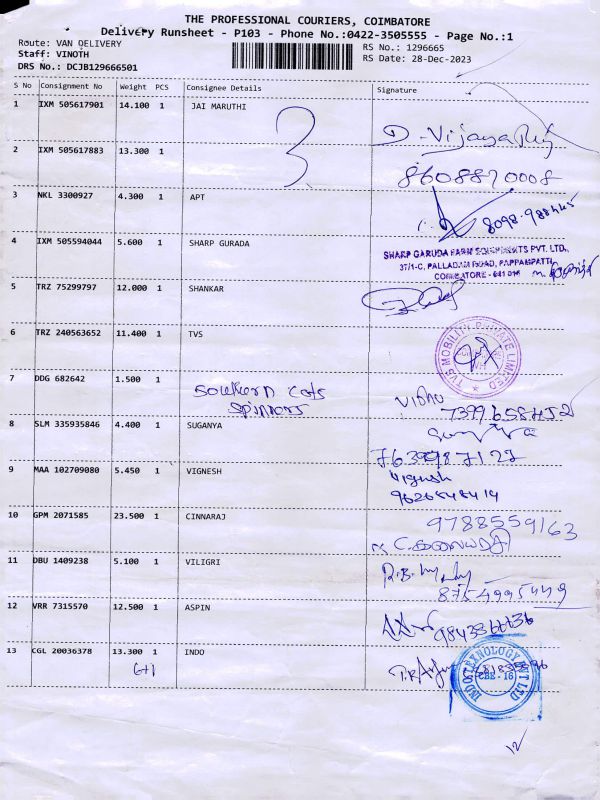 THE PROFESSIONAL COURIERS, COIMBATORE
Delivery Runsheet - P103 - Phone No.:0422-3505555 - Page No.:1
Route: VAN DELIVERY
Staff: VINOTH
DRS No.: DCJB129666501
RS No.: 1296665
RS Date: 28-Dec-2023
S No Consignment No Weight PCS Consignee Details Signature
1 IXM 505617901 14.100 1 JAI MARUTHI
3
2 IXM 505617883 13.300 1
8608870008
3 NKL 3300927 4.300 1 APT
4 IXM 505594044 5.600 1 SHARP GURADA
SHARP GARUDA FARM EQUIPMENTS PVT. LTD.,
37/1-C, PALLADAM ROAD, PAPPAMPATTI,
COIMBATORE - 641 016
5 TRZ 75299797 12.000 1 SHANKAR
6 TRZ 240563652 11.400 1 TVS
TVS MOBILITY PRIVATE LIMITED
7 DDG 682642 1.500 1 Southern Cots
Spinners
Vishu
7399658452
8 SLM 335935846 4.400 1 SUGANYA
7639987127
9 MAA 102709080 5.450 1 VIGNESH
Vignesh
9626548414
10 GPM 2071585 23.500 1 CINNARAJ
9788559163
11 DBU 1409238 5.100 1 VILIGRI
8754995449
12 VRR 7315570 12.500 1 ASPIN
13 CGL 20036378 13.300 1 INDO
6+1
INDO TEKNOLOGY PVT LTD
CBE - 16
12